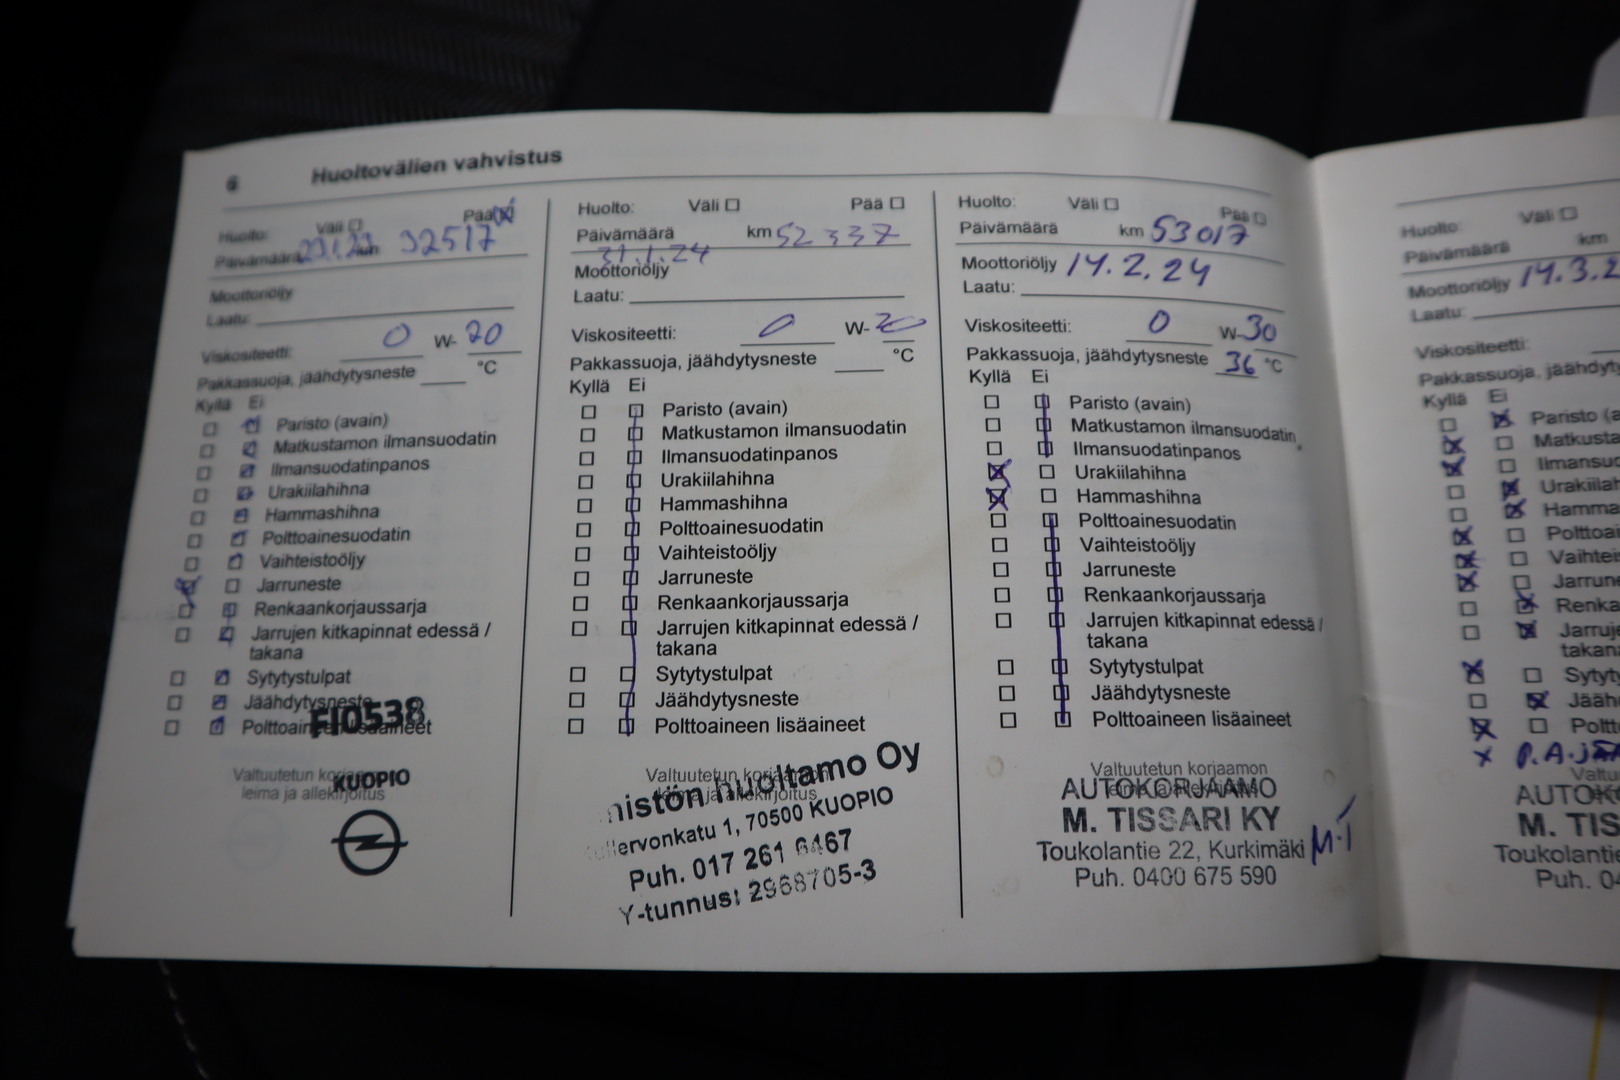 6 Huoltovälien vahvistus
Huolto: Väli Pää
Päivämäärä km 32517
Moottoriöljy
Laatu:
Viskositeetti: 0 W-20
Pakkassuoja, jäähdytysneste °C
Kyllä Ei
Paristo (avain)
Matkustamon ilmansuodatin
Ilmansuodatinpanos
Urakiilahihna
Hammashihna
Polttoainesuodatin
Vaihteistoöljy
Jarruneste
Renkaankorjaussarja
Jarrujen kitkapinnat edessä /
takana
Sytytystulpat
Jäähdytysneste
Polttoaineen lisäaineet
FI0538
Valtuutetun korjaamon
leima ja allekirjoitus
KUOPIO
Huolto: Väli Pää
Päivämäärä km 52337
31.1.24
Moottoriöljy
Laatu:
Viskositeetti: 0 W-
Pakkassuoja, jäähdytysneste °C
Kyllä Ei
Paristo (avain)
Matkustamon ilmansuodatin
Ilmansuodatinpanos
Urakiilahihna
Hammashihna
Polttoainesuodatin
Vaihteistoöljy
Jarruneste
Renkaankorjaussarja
Jarrujen kitkapinnat edessä /
takana
Sytytystulpat
Jäähdytysneste
Polttoaineen lisäaineet
Valtuutetun korjaamon
leima ja allekirjoitus
nistön huoltamo Oy
llervonkatu 1, 70500 KUOPIO
Puh. 017 261 6467
Y-tunnus: 2968705-3
Huolto: Väli Pää
Päivämäärä km 53017
Moottoriöljy 14.2.24
Laatu:
Viskositeetti: 0 W-30
Pakkassuoja, jäähdytysneste 36 °C
Kyllä Ei
Paristo (avain)
Matkustamon ilmansuodatin
Ilmansuodatinpanos
Urakiilahihna
Hammashihna
Polttoainesuodatin
Vaihteistoöljy
Jarruneste
Renkaankorjaussarja
Jarrujen kitkapinnat edessä /
takana
Sytytystulpat
Jäähdytysneste
Polttoaineen lisäaineet
Valtuutetun korjaamon
AUTOKORJAAMO
M. TISSARI KY
Toukolantie 22, Kurkimäki M.T
Puh. 0400 675 590
Huolto: Väli
Päivämäärä km
Moottoriöljy 14.3.2
Laatu:
Viskositeetti:
Pakkassuoja, jäähdyty
Kyllä Ei
Paristo (a
Matkusta
Ilmansuo
Urakiilah
Hamma
Polttoa
Vaihtei
Jarrun
Renka
Jarruj
takan
Sytyt
Jääh
Poltt
Valtu
AUTOK
M. TIS
Toukolantie
Puh. 04